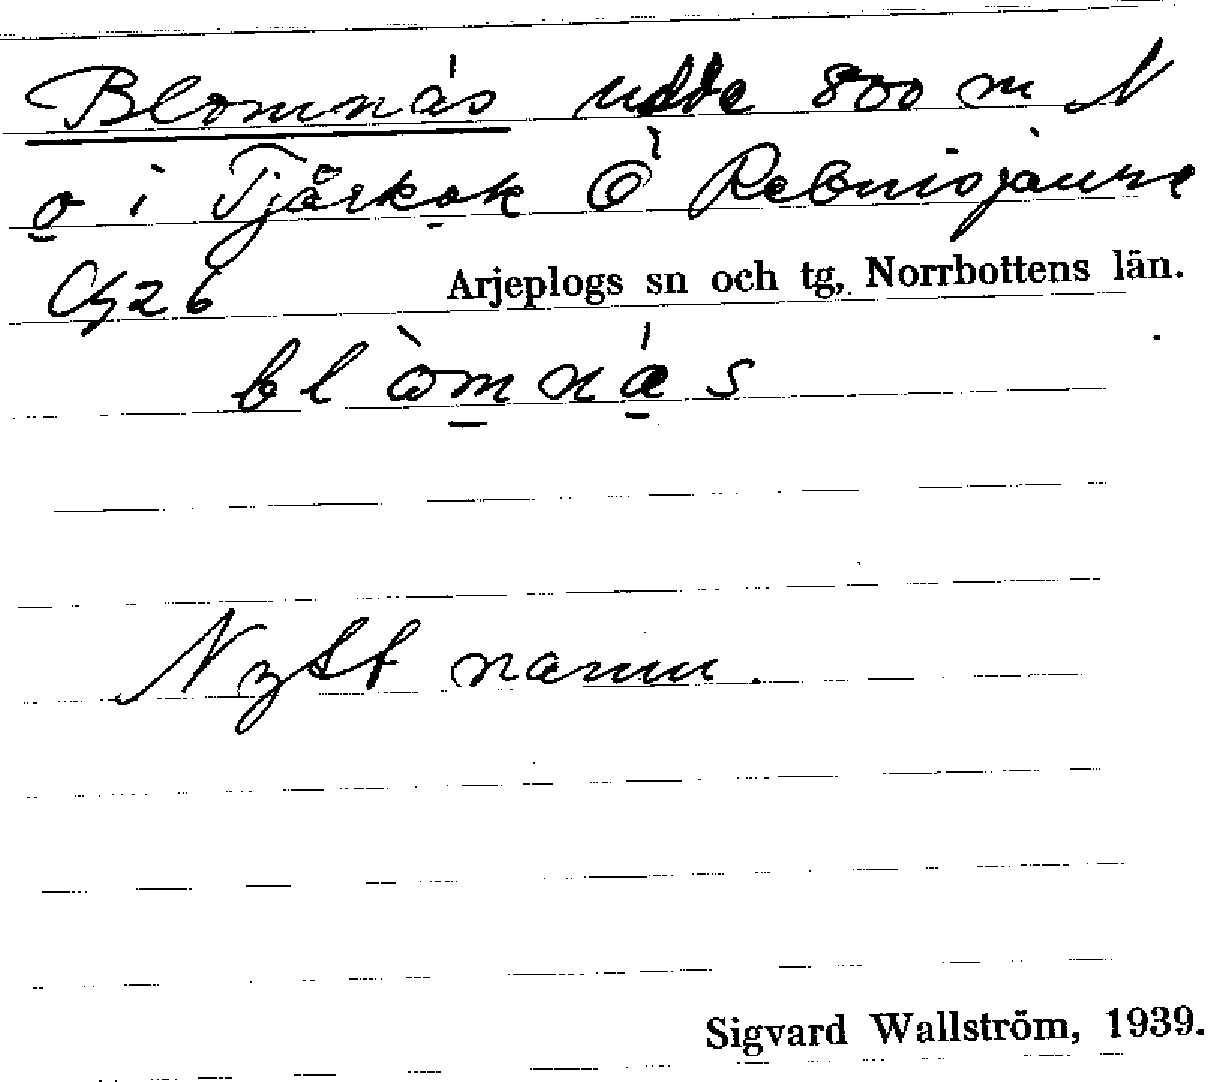 Blomnäs udde 800 m N
o i Tjårkok Ö Rebnisjaure
Cg26 Arjeplogs sn och tg, Norrbottens län.
blòmnás
Nytt namn.
Sigvard Wallström, 1939.